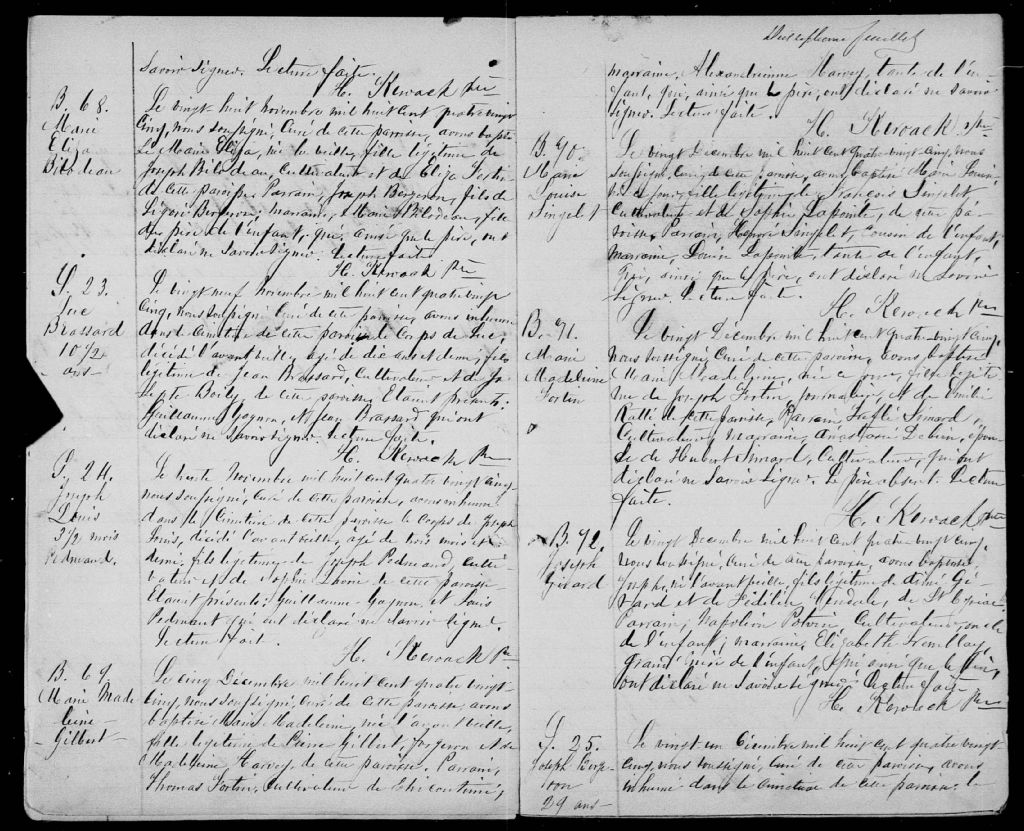 savoir signer. Lecture faite.
H. Keroack Ptre
B. 68.
Marie
Eliza
Bilodeau
Le vingt huit novembre mil huit cent quatre vingt
cinq, nous soussigné, Curé de cette paroisse, avons baptisé
Marie Eliza, née la veille, fille légitime de
Joseph Bilodeau, Cultivateur et de Eliza Fortin
de cette paroisse. Parrain, Joseph Bergeron, fils de
Ligori Bergeron; marraine, Marie Bilodeau,
du père de l'enfant, qui, ainsi que le père, ont
déclaré ne savoir signer. Lecture faite
H. Keroack Ptre
S. 23.
Luc
Brassard
10 1/2
ans
Le vingt neuf novembre mil huit cent quatre vingt
cinq, nous soussigné Curé de cette paroisse, avons inhumé
dans le Cimetière de cette paroisse le Corps de Luc,
décédé l'avant veille, âgé de dix ans et demi, fils
légitime de Jean Brassard, Cultivateur et de
Boily, de cette paroisse. Etaient présents:
Guillaume Gagnon, et Jean Brassard qui ont
déclaré ne savoir signer. Lecture faite.
H. Keroack Ptre
S. 24.
Joseph
Louis
3 1/2 mois
Pedneaud.
Le trente Novembre mil huit cent quatre vingt cinq,
nous soussigné, curé de cette paroisse, avons inhumé
dans le Cimetière de cette paroisse le corps de Joseph
Louis, décédé l'avant veille, âgé de trois mois et
demi, fils légitime de Joseph Pedneaud, Culti-
vateur et de Sophie de cette paroisse
Etaient présents: Guillaume Gagnon, et Louis
Pedneaud qui ont déclaré ne savoir signer.
Lecture fait.
H. Keroack Ptre
B. 69
Marie Made
leine
Gilbert
Le cinq Décembre mil huit cent quatre vingt-
cinq, nous soussigné, curé de cette paroisse, avons
baptisé Marie Madeleine, née l'avant veille,
fille légitime de Pierre Gilbert, forgeron et de
Madeleine Harvey, de cette paroisse. Parrain,
Thomas Fortin, Cultivateur de Chicoutimi,
feuillet
marraine, Alexandrienne Harvey, tante de l'en-
fant, qui, ainsi que le père, ont déclaré ne savoir
signer. Lecture faite.
H. Keroack Ptre
B. 70.
Marie
Louise
Singelet
Le vingt Décembre mil huit cent quatre vingt-cinq, nous
soussigné, curé de cette paroisse, avons baptisé Marie Louise,
née ce jour, fille légitime de François Singelet
Cultivateur et de Sophie Lapointe, de cette pa-
roisse. Parrain, Honoré Singelet, cousin de l'enfant,
marraine, Louise Lapointe, tante de l'enfant,
qui, ainsi que le père, ont déclaré ne savoir
signer. Lecture faite.
H. Keroack Ptre
B. 71.
Marie
Madeleine
Fortin
Le vingt Décembre mil huit cent quatre vingt cinq,
nous soussigné, Curé de cette paroisse, avons baptisé
Marie Madeleine, née ce jour, fille légiti-
me de Joseph Fortin, journalier, et de Emilie
de cette paroisse, Parrain, Simard,
Cultivateur, marraine, Anastasie épou-
se de Hubert Simard, Cultivateur, qui ont
déclaré ne savoir signer. Le père absent. Lecture
faite.
H. Keroack Ptre
B. 72.
Joseph
Girard
Le vingt Décembre mil huit cent quatre vingt cinq,
nous soussigné, curé de cette paroisse, avons baptisé
Joseph, né l'avant veille, fils légitime de Gi-
rard et de de St Cyriac
Parrain, Napoléon Potvin, Cultivateur, oncle
de l'enfant; marraine, Elizabeth Tremblay,
grand mère de l'enfant, qui ainsi que le père,
ont déclaré ne savoir signer. Lecture faite
H. Keroack Ptre
S. 25.
Joseph Berge-
ron
29 ans
Le vingt-un Décembre mil huit cent quatre vingt
cinq, nous soussigné, curé de cette paroisse, avons
inhumé dans le cimetière de cette paroisse le